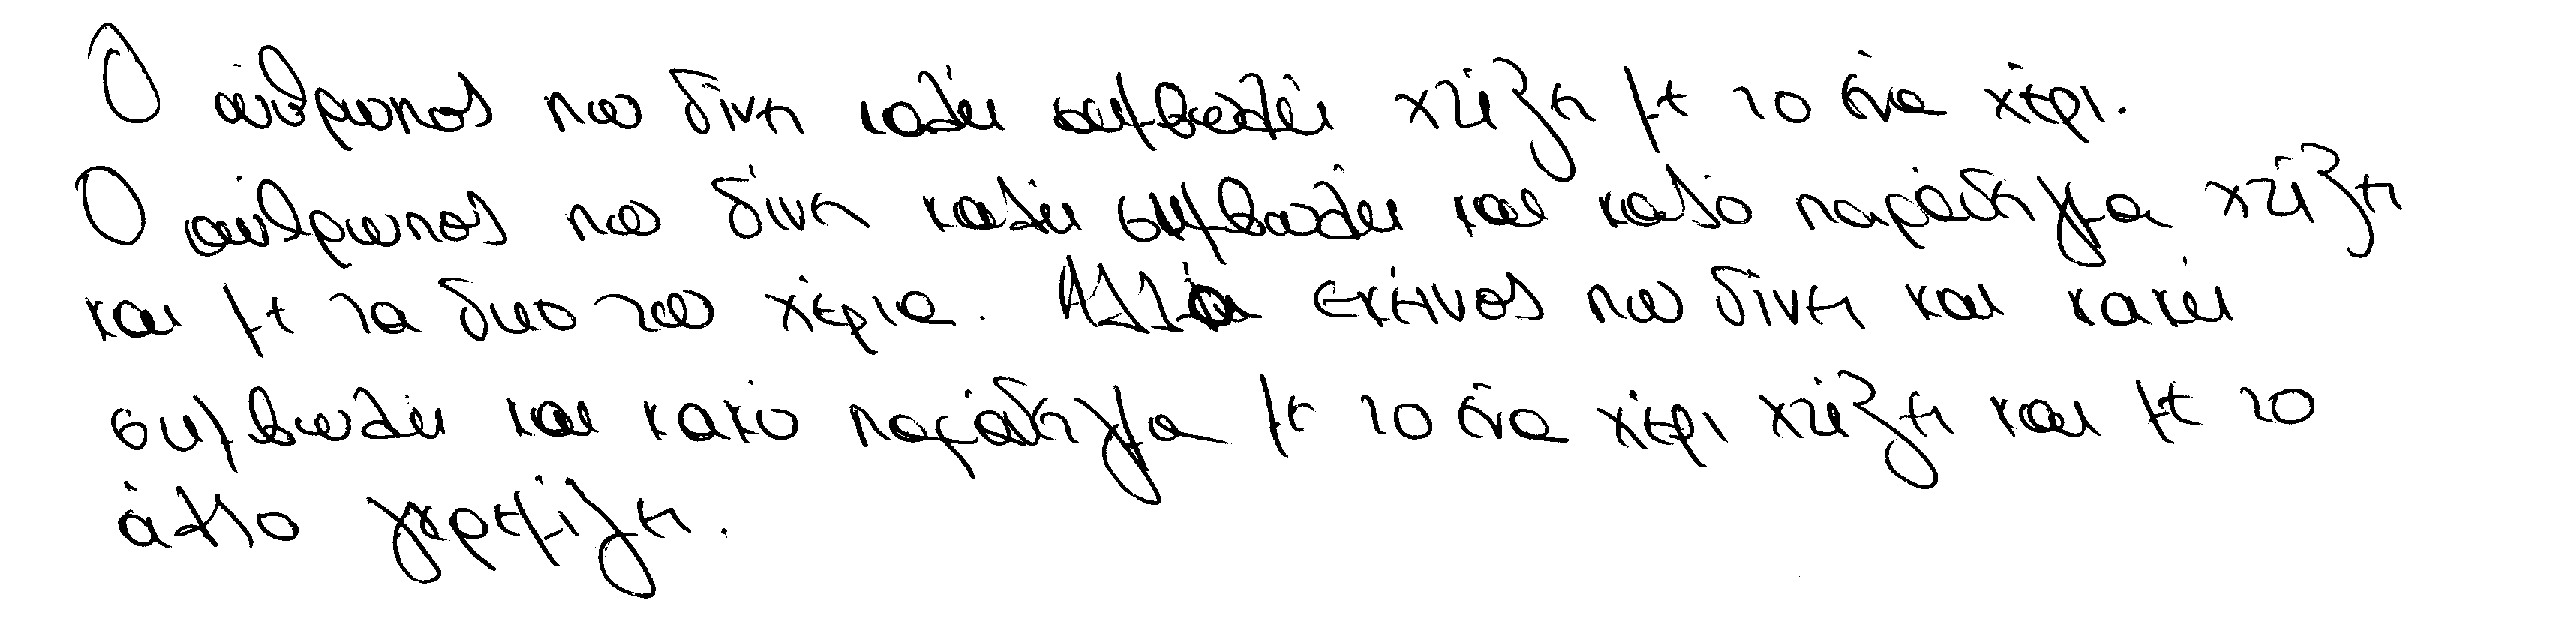 Ο άνθρωπος που δίνει καλές συμβουλές χτίζει με το ένα χέρι.
Ο άνθρωπος που δίνει καλές συμβουλές και καλό παράδειγμα χτίζει
και με τα δυο του χέρια. Αλλά εκείνος που δίνει και κακές
συμβουλές και κακό παράδειγμα με το ένα χέρι χτίζει και με το
άλλο γκρεμίζει.